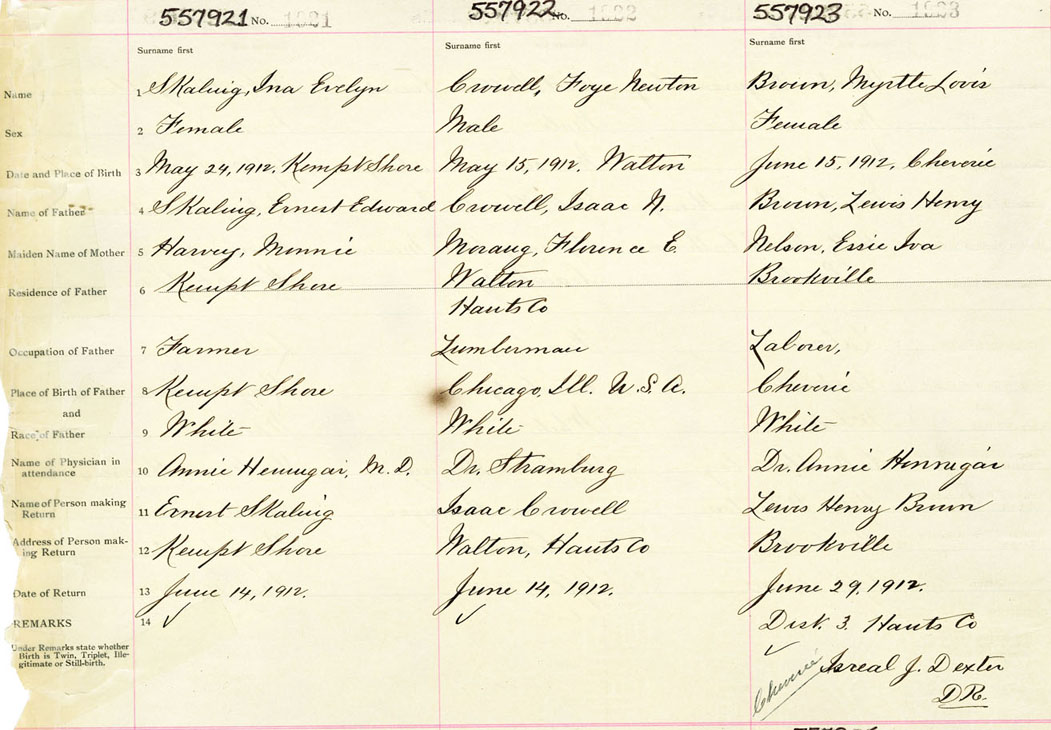 557921 No. 1821 557922 No. 1822 557923 No. 1823
Surname first Surname first Surname first
Name 1 Skaling, Ina Evelyn Crowell, Foye Newton Brown, Myrtle Lovis
Sex 2 Female Male Female
Date and Place of Birth 3 May 24, 1912. Kempt Shore May 15, 1912. Walton June 15, 1912, Cheverie
Name of Father 4 Skaling, Ernest Edward Crowell, Isaac N. Brown, Lewis Henry
Maiden Name of Mother 5 Harvey, Minnie Moraug, Florence E. Nelson, Essie Iva
Residence of Father 6 Kempt Shore Walton Brookville
Hants Co
Occupation of Father 7 Farmer Lumberman Laborer,
Place of Birth of Father 8 Kempt Shore Chicago, Ill. U.S.A. Cheverie
and
Race of Father 9 White White White
Name of Physician in
attendance 10 Annie Hennigar, M.D. Dr. Stramburg Dr. Annie Hennigar
Name of Person making
Return 11 Ernest Skaling Isaac Crowell Lewis Henry Brown
Address of Person mak-
ing Return 12 Kempt Shore Walton, Hants Co Brookville
Date of Return 13 June 14, 1912. June 14, 1912. June 29, 1912.
REMARKS 14 ✓ ✓ Dist. 3. Hants Co
Under Remarks state whether
Birth is Twin, Triplet, Ille-
gitimate or Still-birth.
Cheverie Isreal J. Dexter
D.R.